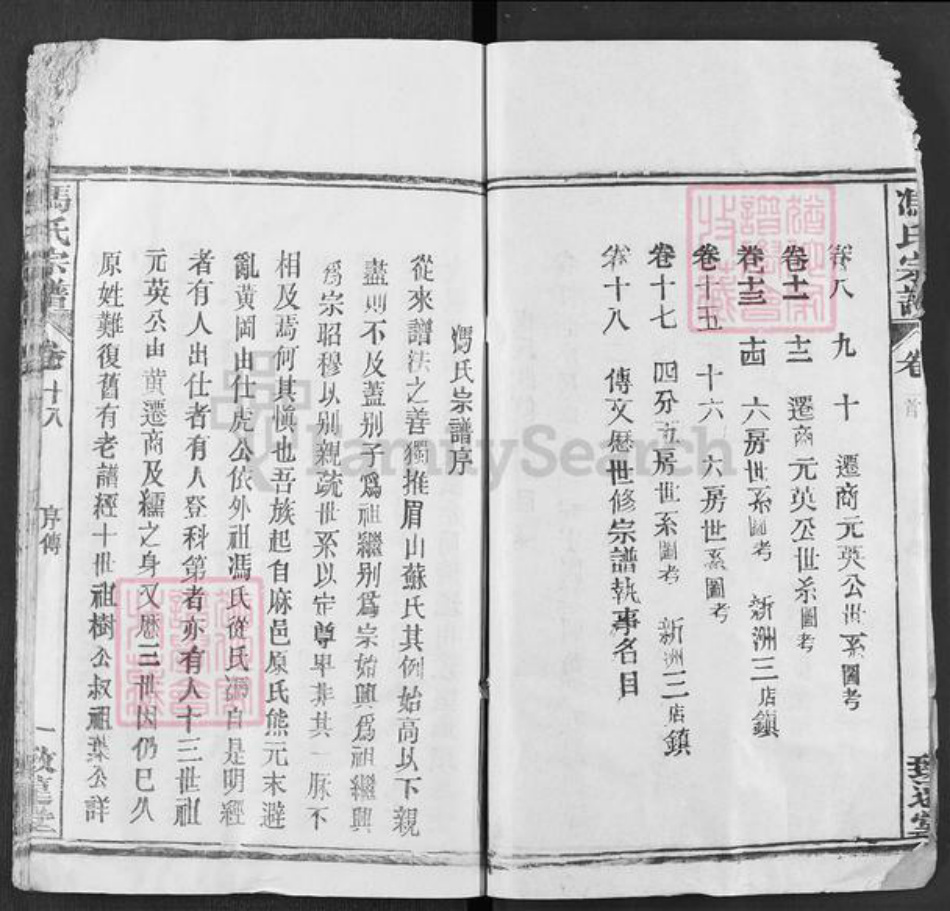 馮氏宗譜
卷
首
卷八 九 十 遷商元英公世系圖考
卷十一 十二 遷商元英公世系圖考
卷十三 十四 六房世系圖考 新洲三店鎮
卷十五 十六 六房世系圖考
卷十七 四分五房世系圖考 新洲三店鎮
卷十八 傳文歷世修宗譜執事名目
馮氏宗譜序
從來譜法之善獨推眉山蘇氏其例始高以下親
盡則不及蓋别子爲祖繼别爲宗始興爲祖繼興
爲宗昭穆以别親疏世系以定尊卑非其一脈不
相及焉何其愼也吾族起自麻邑原氏熊元末避
亂黄岡由仕虎公依外祖馮氏從氏馮自是明經
者有人出仕者有人登科第者亦有人十三世祖
元英公由黄遷商及繻之身又歷三世因仍已久
原姓難復舊有老譜經十世祖樹公叔祖葉公詳
馮氏宗譜
卷十八
序傳
一
FamilySearch